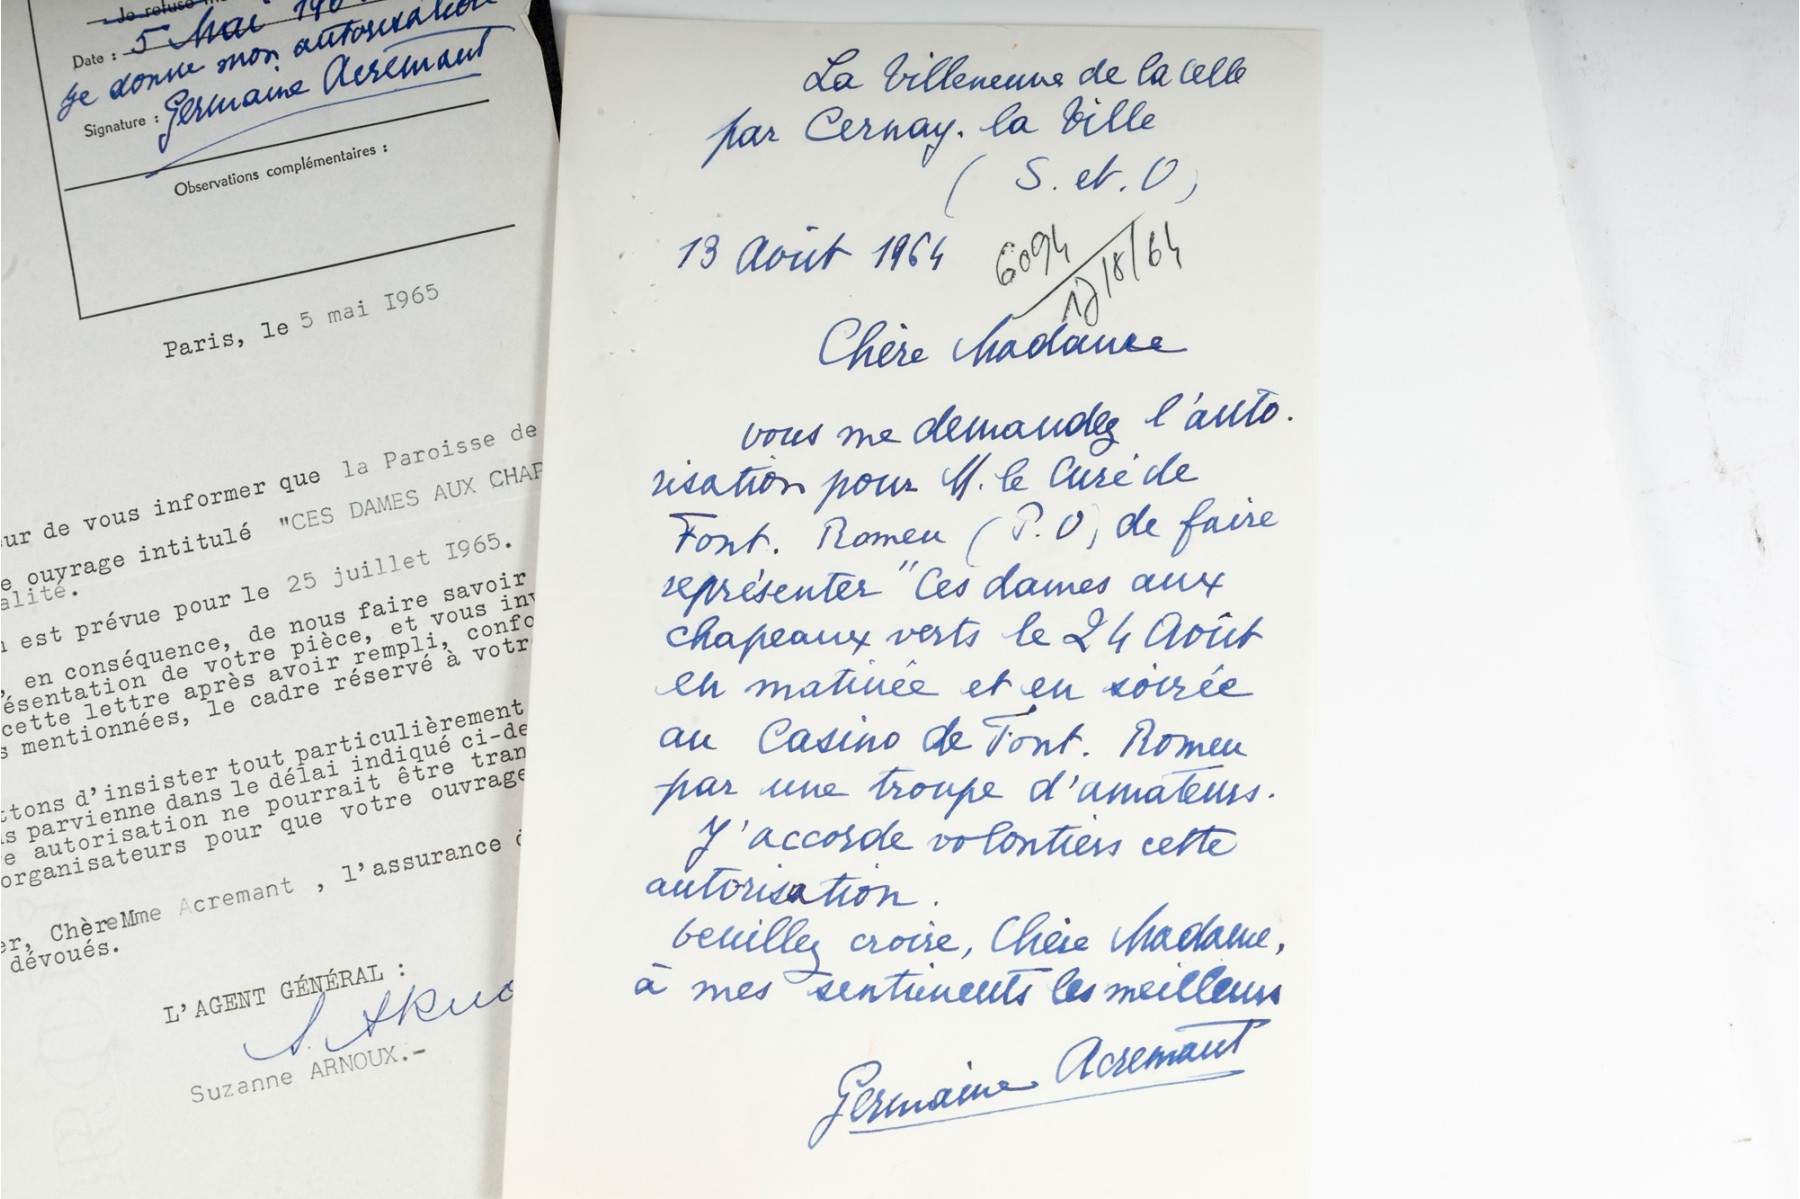 Je refuse
Date : 5 Mai 196
Je donne mon autorisation
Signature : Germaine Acremant
Observations complémentaires :
Paris, le 5 mai I965
ur de vous informer que la Paroisse de
e ouvrage intitulé "CES DAMES AUX CHAP
alité.
n est prévue pour le 25 juillet I965.
, en conséquence, de nous faire savoir
ésentation de votre pièce, et vous inv
cette lettre après avoir rempli, confo
s mentionnées, le cadre réservé à votr
ttons d'insister tout particulièrement
s parvienne dans le délai indiqué ci-de
e autorisation ne pourrait être tran
organisateurs pour que votre ouvrage
er, ChèreMme Acremant , l'assurance d
dévoués.
L'AGENT GÉNÉRAL :
Suzanne ARNOUX.-
La Villeneuve de la celle
par Cernay. la Ville
( S. et. O)
13 Août 1964
6094
17/8/64
Chère Madame
vous me demandez l'auto.
risation pour M. le Curé de
Font. Romeu (P.O) de faire
représenter "Ces dames aux
chapeaux verts le 24 Août
en matinée et en soirée
au Casino de Font. Romeu
par une troupe d'amateurs.
J'accorde volontiers cette
autorisation.
Veuillez croire, Chère Madame,
à mes sentiments les meilleurs
Germaine Acremant